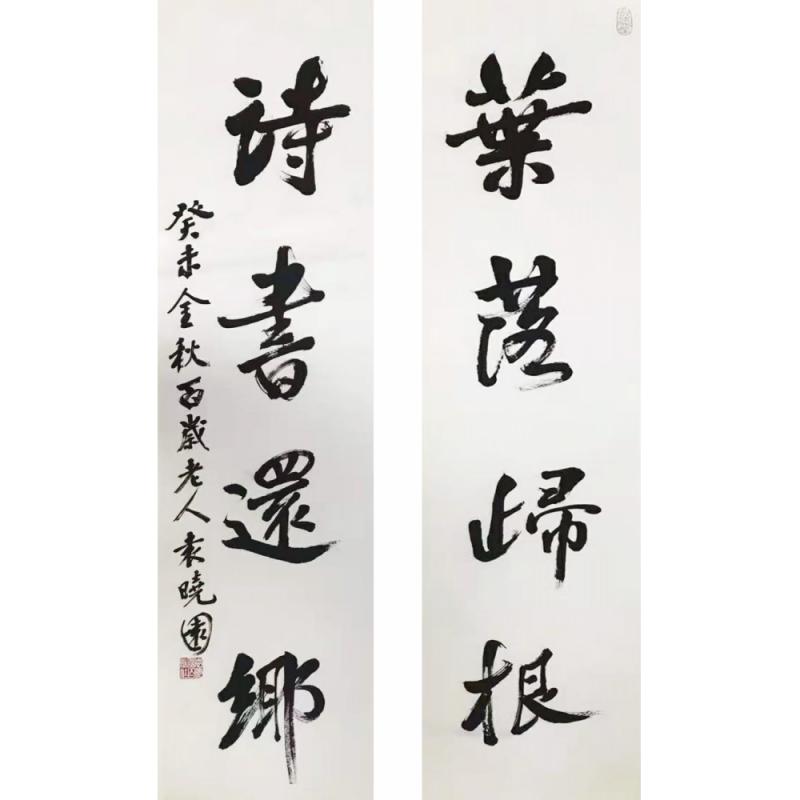 葉落歸根
詩書還鄉
癸未金秋百歲老人袁曉園